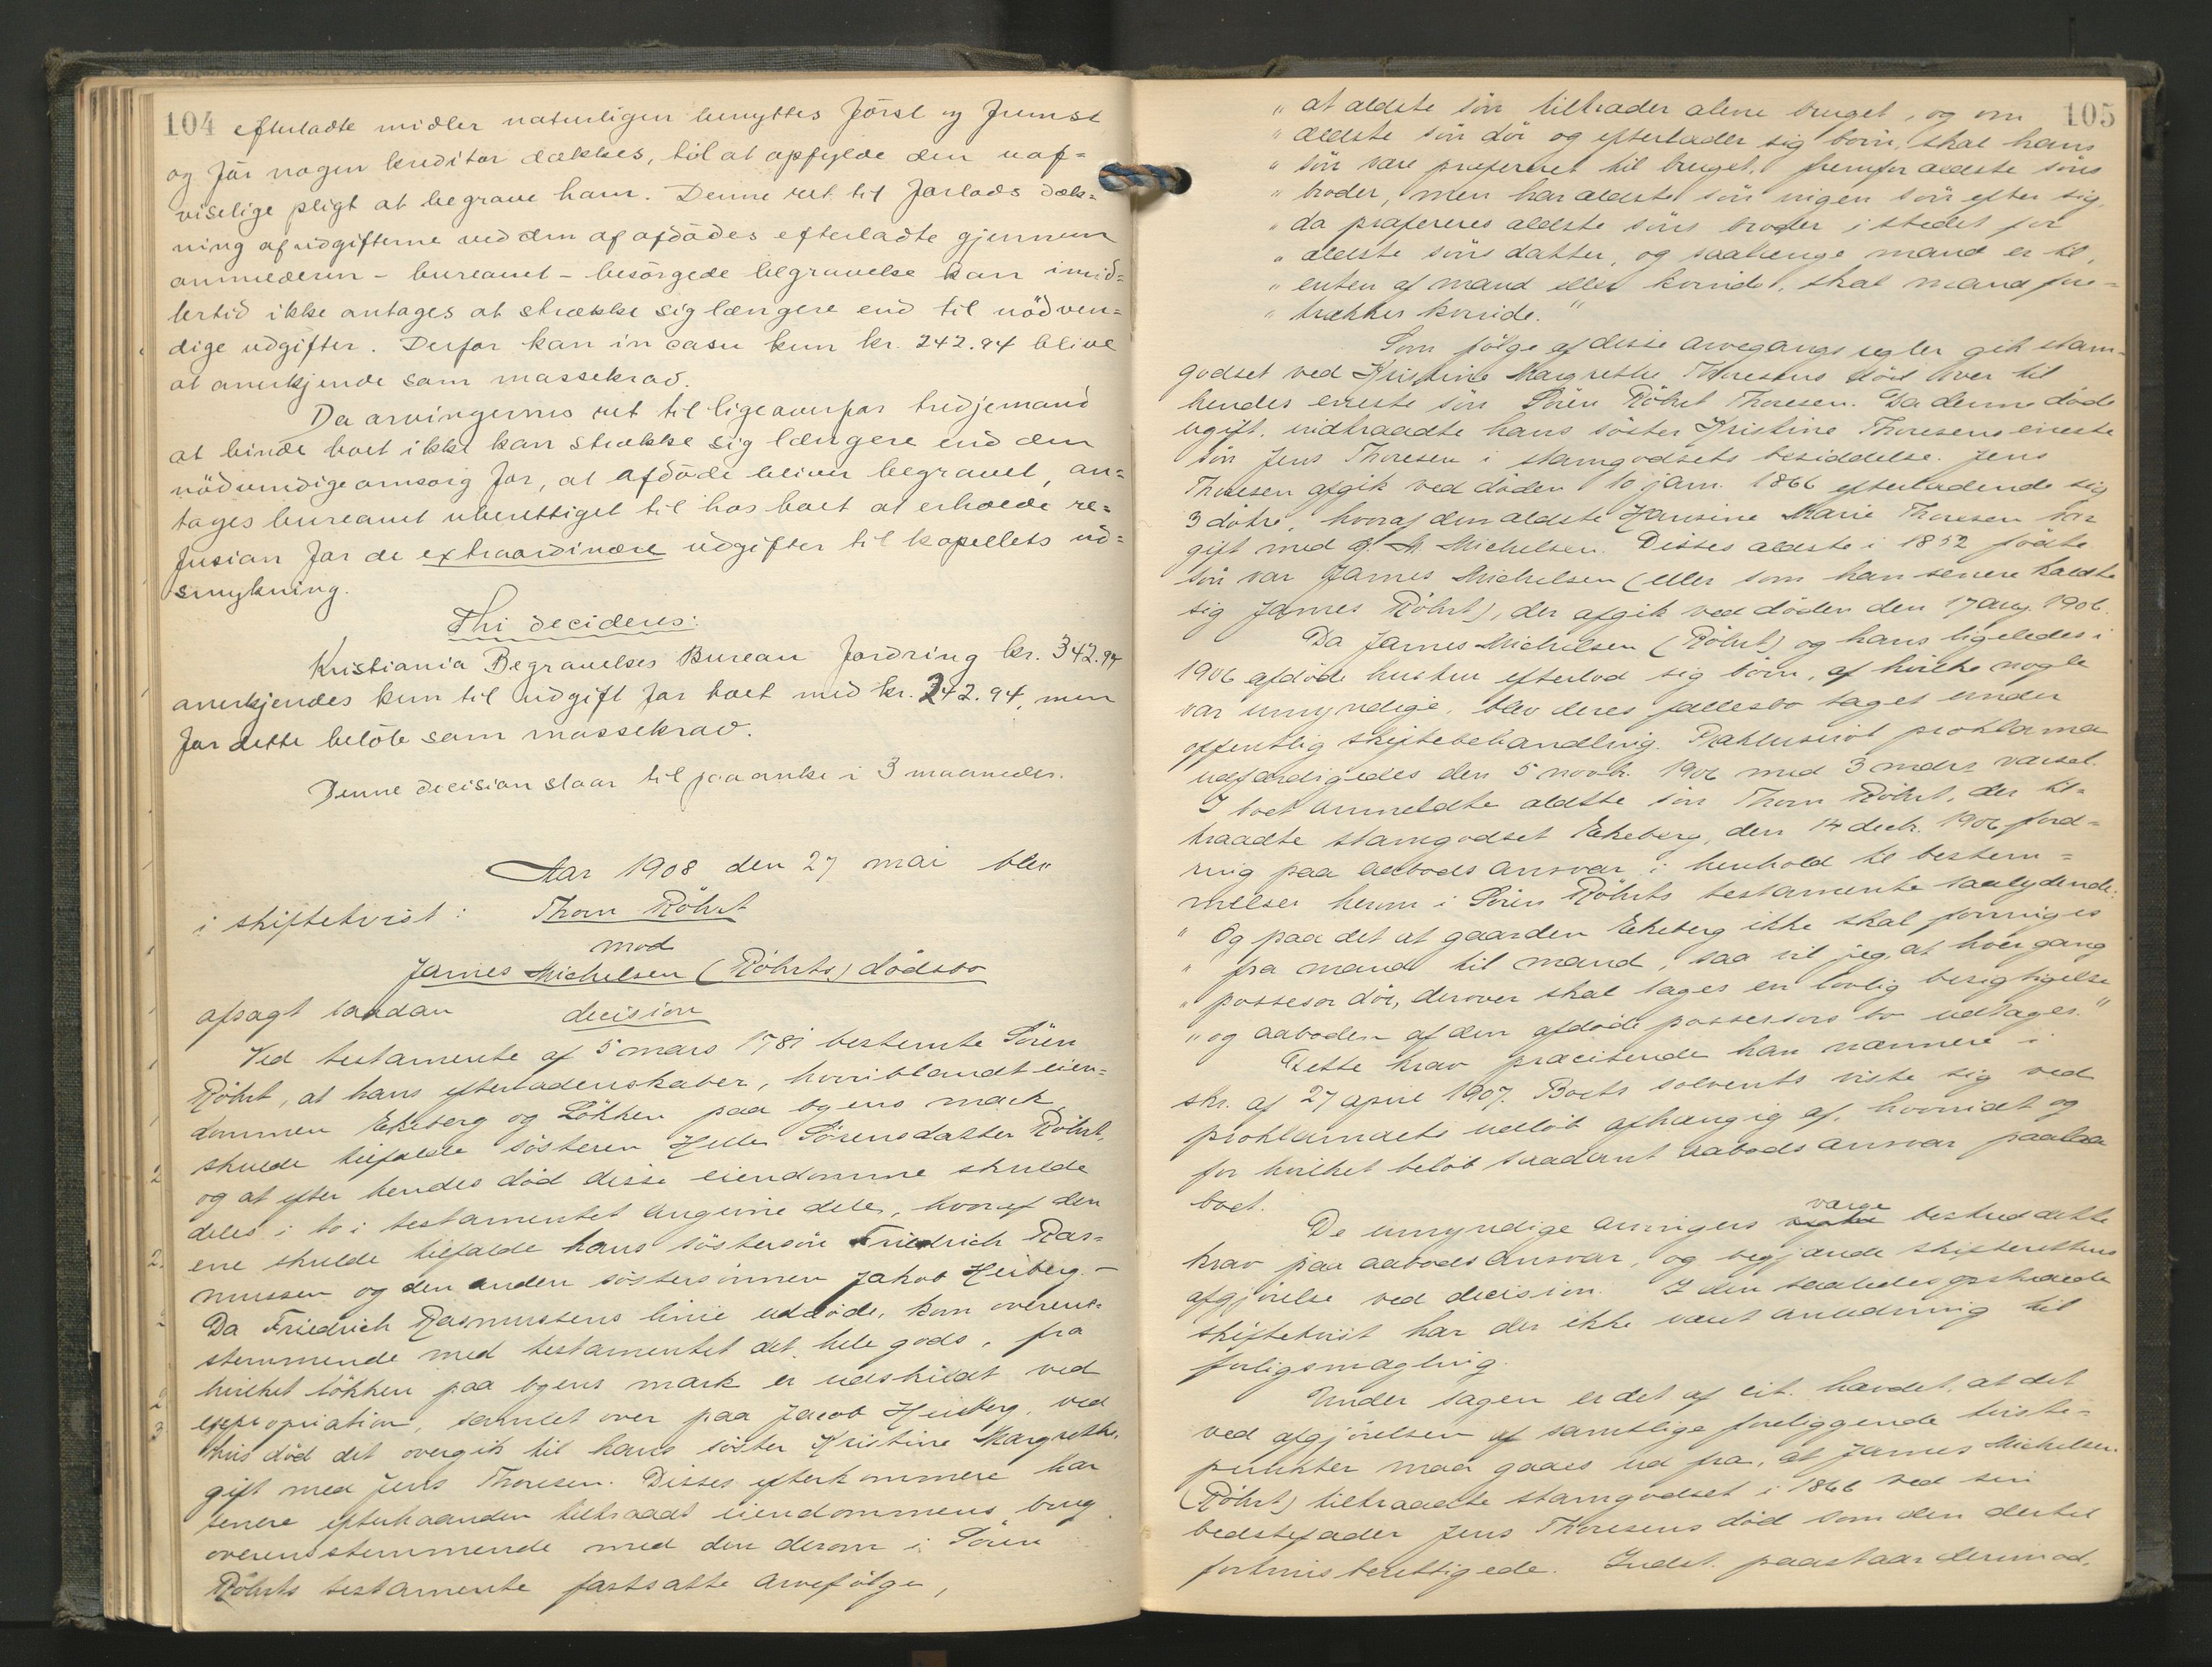 104 efterladte midler naturligen benyttes först og fremst
og för nogen kreditor dækkes, til at opfylde den uaf-
viselige pligt at begrave ham. Denne ret til forlods dæk-
ning af udgifterne ved den af afdødes efterladte gjennem
anmelderen - bureauet - besörgede begravelse kan imid-
lertid ikke antages at strække sig længere end til nödven-
dige udgifter. Derfor kan in casu kun kr. 242.94 blive
at anerkjende som massekrav.
Da arvingernes ret til ligeoverfor tredjemand
at binde boet ikke kan strække sig længere end den
nödvendige omsorg for, at afdöde bliver begravet, an-
tages bureauet uberettiget til hos boet at erholde re-
fusion for de extraordinære udgifter til kapellets ud-
smykning.
Thi decideres:
Kristiania Begravelses Bureau fordring kr. 342.94
anerkjendes kun til udgift for boet med kr. 242.94, men
for dette belöb som massekrav.
Denne decision staar til paaanke i 3 maaneder.
Aar 1908 den 27 mai blev
i skiftetvist: Thorn Röhrt
mod
James Michelsen (Röhrts) dödsbo
afsagt saadan decision
Ved testamente af 5 mars 1781 bestemte Sören
Röhrt, at hans efterladenskaber, hvoriblandt eien-
dommen Ekeberg og Lökken paa byens mark
skulde tilfalde sösteren Helle Sörensdatter Röhrt,
og at efter hendes död disse eiendomme skulde
deles i to i testamentet angivne dele, hvoraf den
ene skulde tilfalde hans söstersön Friedrich Ras-
mussen og den anden söstersönnen Jakob Heiberg. -
Da Friedrich Rasmussens linie uddöde, kom overens-
stemmende med testamentet det hele gods, fra
hvilket lökken paa byens mark er udskildt ved
expropriation, samlet over paa Jacob Heiberg, ved
hvis död det overgik til hans söster Kristine Margrethe,
gift med Jens Thoresen. Disses efterkommere har
senere efterhaanden tiltraadt eiendommens brug
overensstemmende med den derom i Sören
Röhrts testamente fastsatte arvefölge,
105
" at ældste sön tiltræder alene bruget, og om
" ældste sön dör og efterlader sig börn, skal hans
" sön være prefereret til bruget, fremfor ældste söns
" broder, men har ældste sön ingen sön efter sig,
" da præfereres ældste söns broder i stedet for
" ældste söns datter, og saalænge mand er til,
" enten af mand eller kvinde, skal mand fore-
" trækkes kvinde."
Som fölge af disse arvegangsregler gik stam-
godset ved Kristine Margrethe Thoresens död over til
hendes eneste sön Sören Röhrt Thoresen. Da denne döde
ugift, indtraadte hans söster Kristine Thoresens eneste
sön Jens Thoresen i stamgodsets besiddelse. Jens
Thoresen afgik ved döden 10 jan. 1866 efterladende sig
3 dötre, hvoraf den ældste Hansine Marie Thoresen var
gift med Michelsen. Disses ældste i 1852 födte
sön var James Michelsen (eller som han senere kaldte
sig James Röhrt), der afgik ved döden den 17 aug. 1906.
Da James Michelsen (Röhrt) og hans ligeledes i
1906 afdöde hustru efterlod sig börn, af hvilke nogle
var umyndige, blev deres fællesbo taget under
offentlig skiftebehandling. Præklusivt proklama
udfærdigedes den 5 novbr. 1906 med 3 mdrs varsel.
I boet anmeldte ældste sön Thorn Röhrt, der til-
traadte stamgodset Ekeberg, den 14 decbr. 1906 ford-
ring paa aabodsansvar i henhold til bestem-
melser herom i Sören Röhrts testamente saalydende:
" Og paa det at gaarden Ekeberg ikke skal forringes
" fra mand til mand, saa vil jeg, at hver gang
" possesor dör, derover skal tages en lovlig besigtigelse
" og aaboden af den afdöde possessors bo udtages."
Dette krav præciserede han nærmere i
skr. af 27 april 1907. Boets solvents viste sig ved
proklamaets udlöb afhængig af, hvorvidt og
for hvilket belöb saadant aabodsansvar paalaa
boet.
De umyndige arvingers værge bestred dette
krav paa aabodsansvar, og begjærede skifterettens
afgjörelse ved decision. I den saaledes opstaaede
skiftetvist har der ikke været anledning til
forligsmægling.
Under sagen er det af cit. hævdet, at det
ved afgjörelsen af samtlige foreliggende tviste-
punkter maa gaaes ud fra, at James Michelsen
(Röhrt) tiltraadte stamgodset i 1866 ved sin
bedstefader Jens Thoresens död som den dertil
fortrinsberettigede. Indst. paastaar derimod,